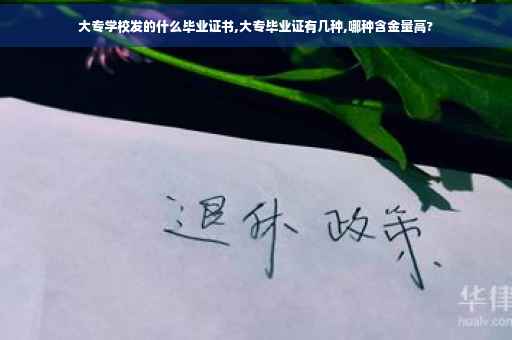 大专学校发的什么毕业证书,大专毕业证有几种,哪种含金量高?
退休 政策
华律
hualv.com